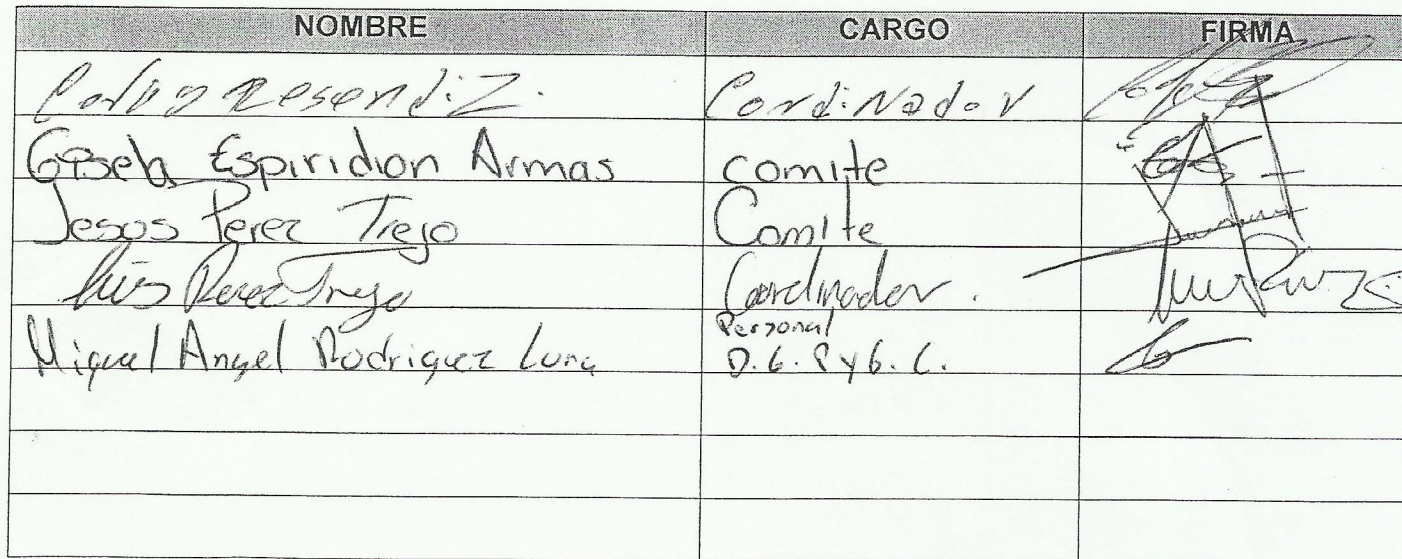 NOMBRE CARGO FIRMA
Resendiz. Cordinador
Gisela Espiridion Armas comite
Jesos Perez Trejo Comite
Luis Perez Trejo Coordinador.
Personal
Miguel Angel Rodriguez Luna D.G. P y G. C.